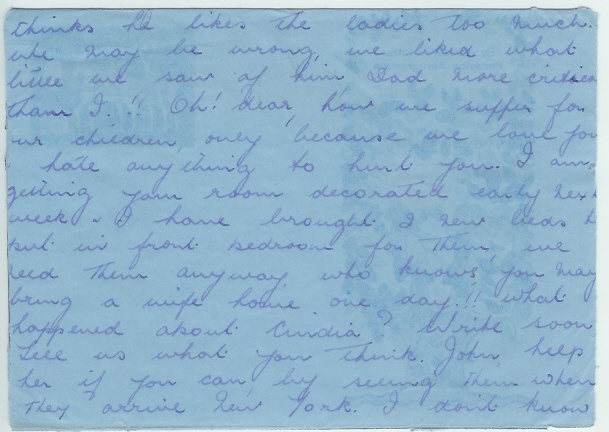 thinks he likes the ladies too much.
we may be wrong, we liked what
little we saw of him Dad more critical
than I.!! Oh! dear, how we suffer for
our children, only because we love you
hate anything to hurt you. I am
getting your room decorated early next
week - I have brought 2 new beds to
put in front bedroom for them, we
need them anyway, who knows, you may
bring a wife home one day.!! What
happened about ? Write soon
Tell us what you think. John help
her if you can by seeing them when
they arrive New York. I don't know